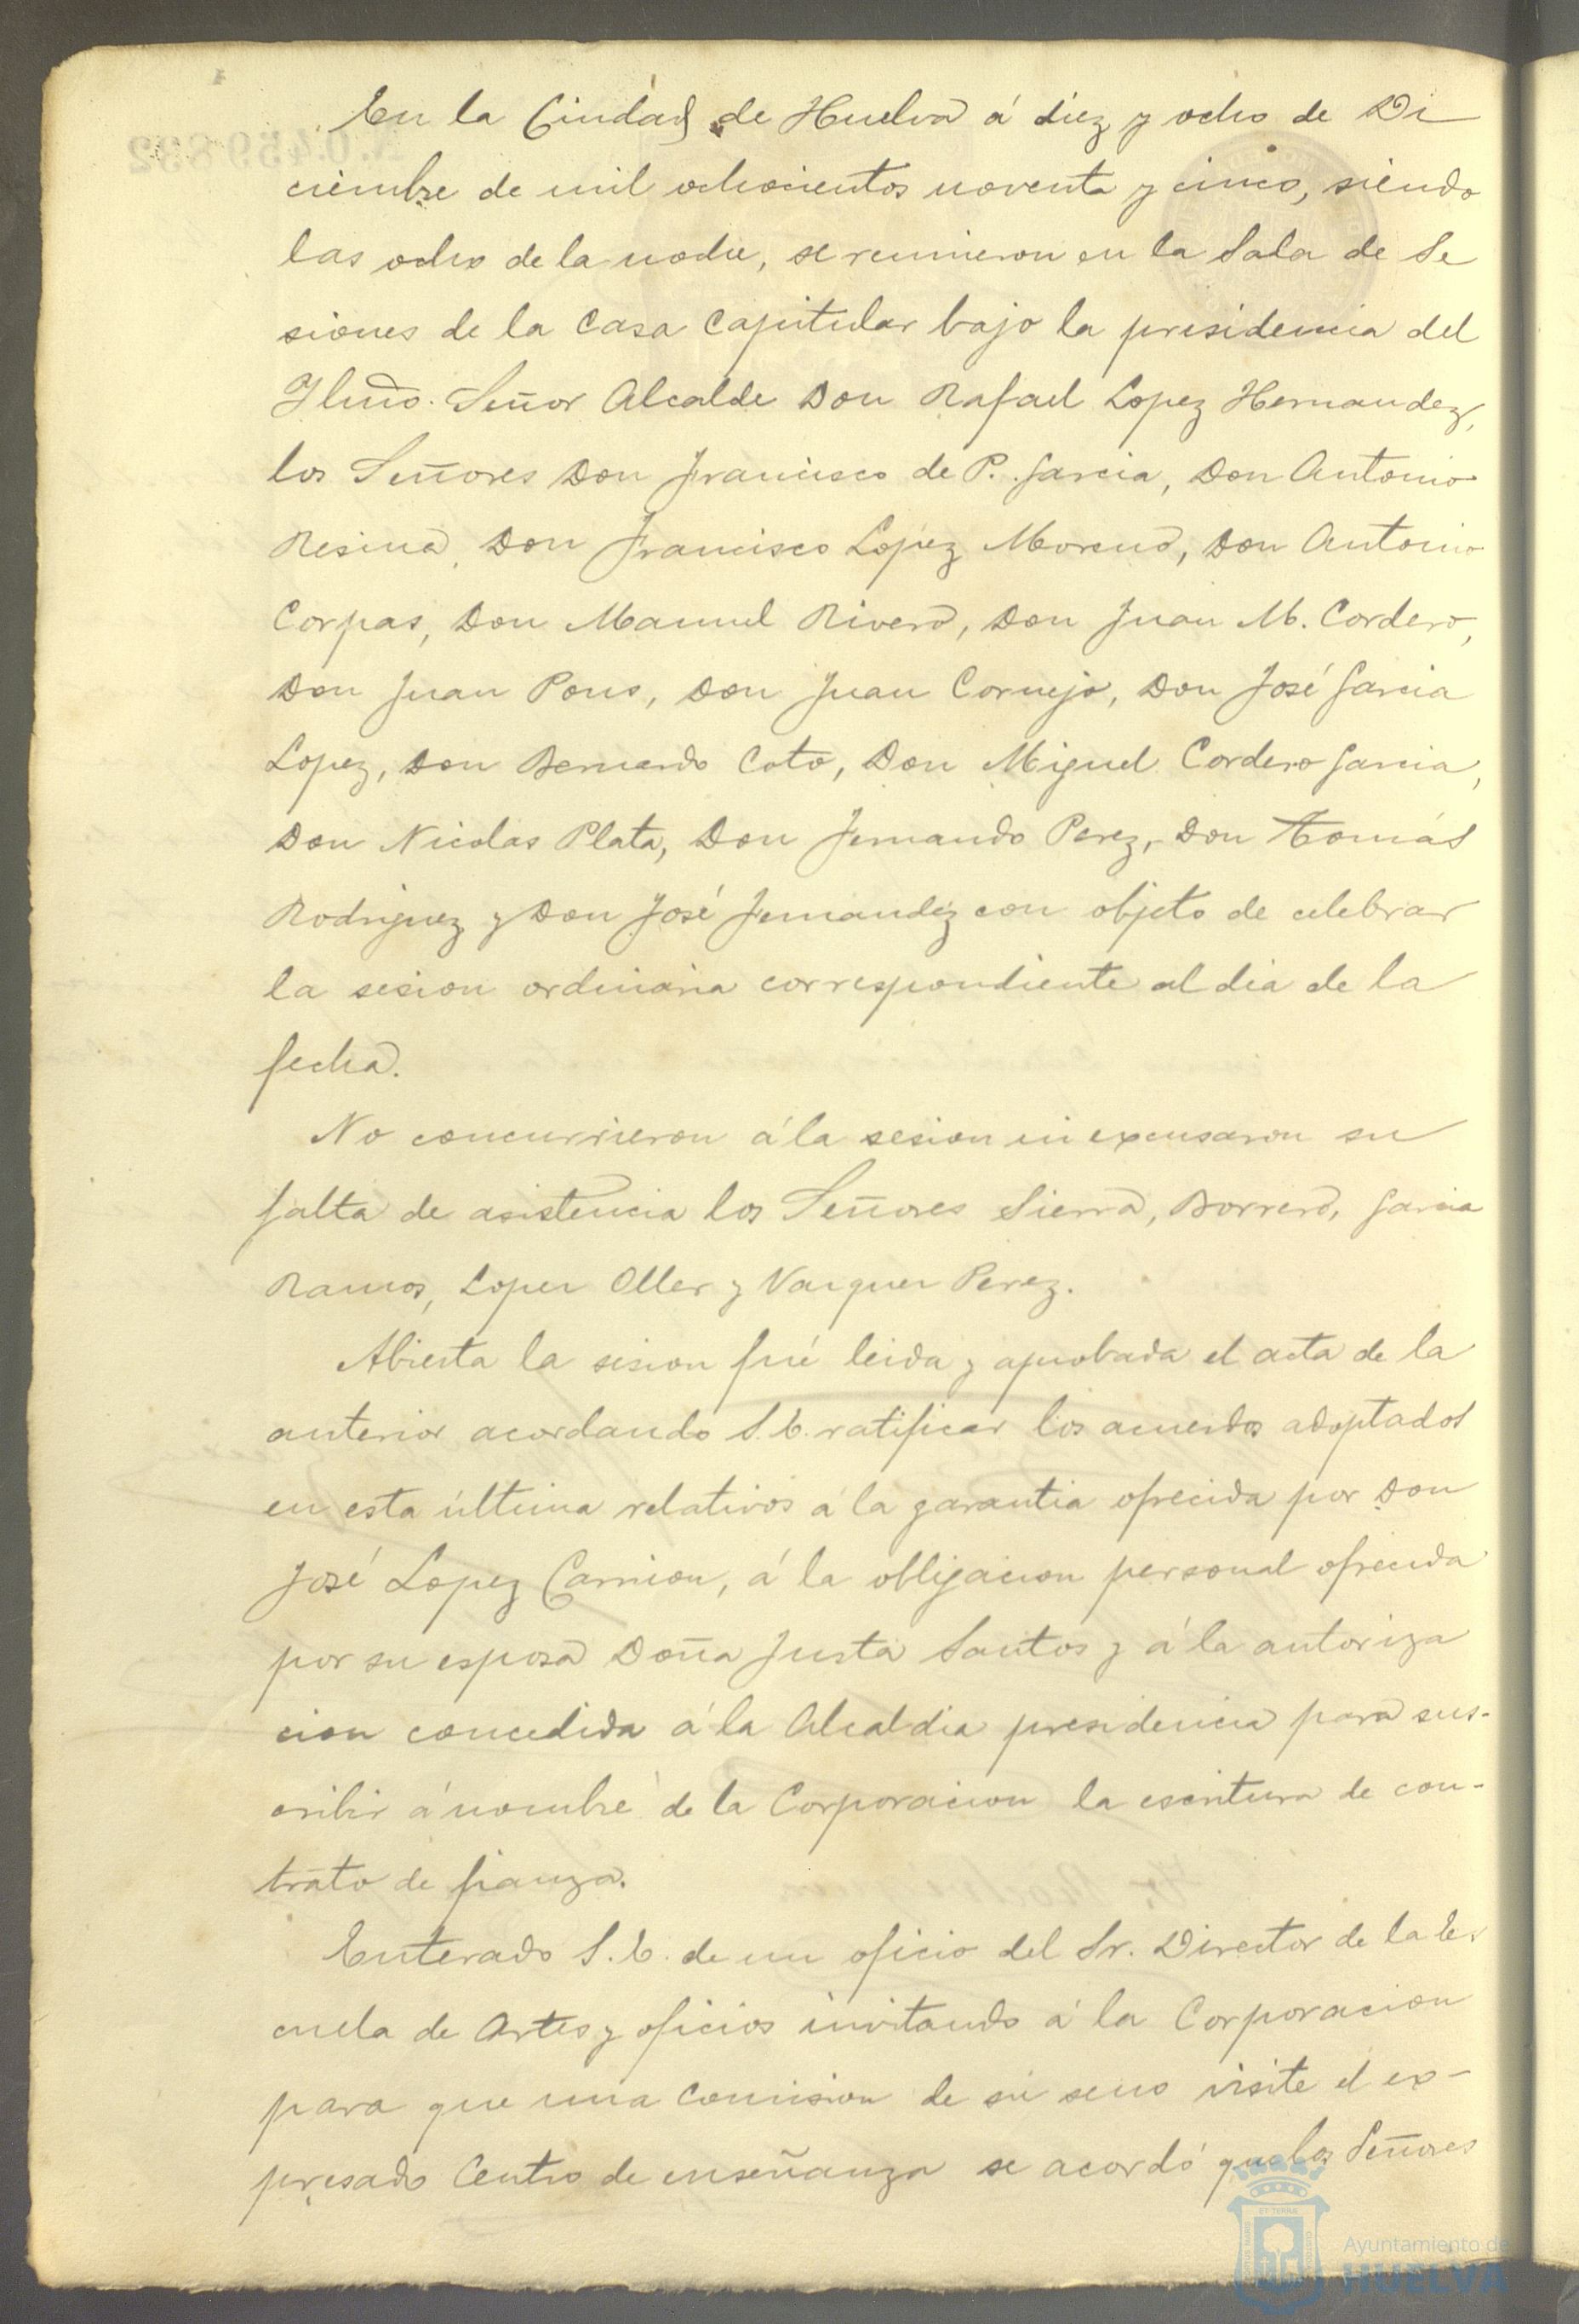 En la Ciudad de Huelva á diez y ocho de Di
ciembre de mil ochocientos noventa y cinco, siendo
las ocho de la noche, se reunieron en la Sala de Se
siones de la Casa Capitular bajo la presidencia del
Ilmo. Señor Alcalde Don Rafael Lopez Hernandez,
los Señores Don Francisco de P. Garcia, Don Antonio
Resina, Don Francisco López Moreno, Don Antonio
Corpas, Don Manuel Rivero, Don Juan M. Cordero,
Don Juan Pons, Don Juan Cornejo, Don José Garcia
Lopez, Don Bernardo Coto, Don Miguel Cordero Garcia,
Don Nicolas Plata, Don Fernando Perez, Don Tomás
Rodriguez y Don José Fernandez con objeto de celebrar
la sesion ordinaria correspondiente al dia de la
fecha.
No concurrieron á la sesion ni excusaron su
falta de asistencia los Señores Sierra, Borrero, Garcia
Ramos, Lopez Oller y Vazquez Perez.
Abierta la sesion fué leida y aprobada el acta de la
anterior acordando S.E. ratificar los acuerdos adoptados
en esta última relativos á la garantia ofrecida por Don
José Lopez Carrion, á la obligacion personal ofrecida
por su esposa Doña Justa Santos y á la autoriza
cion concedida á la Alcaldia presidencia para sus-
cribir á nombre de la Corporacion la escritura de con-
trato de fianza.
Enterado S.E. de un oficio del Sr. Director de la Es
cuela de Artes y oficios invitando á la Corporacion
para que una Comision de su seno visite el ex-
presado Centro de enseñanza se acordó que los Señores
Ayuntamiento de
HUELVA